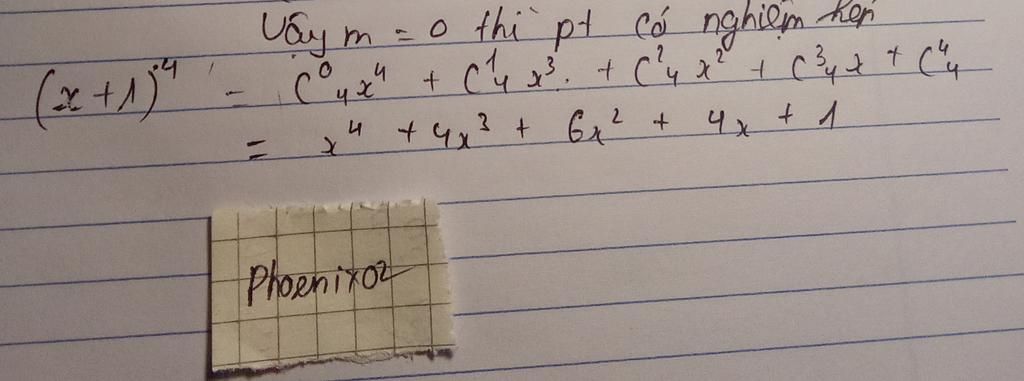 Vậy m = 0 thì pt có nghiệm kép
(x + 1)^4 = C^0_4 x^4 + C^1_4 x^3 + C^2_4 x^2 + C^3_4 x + C^4_4
= x^4 + 4x^3 + 6x^2 + 4x + 1
Phoenix02